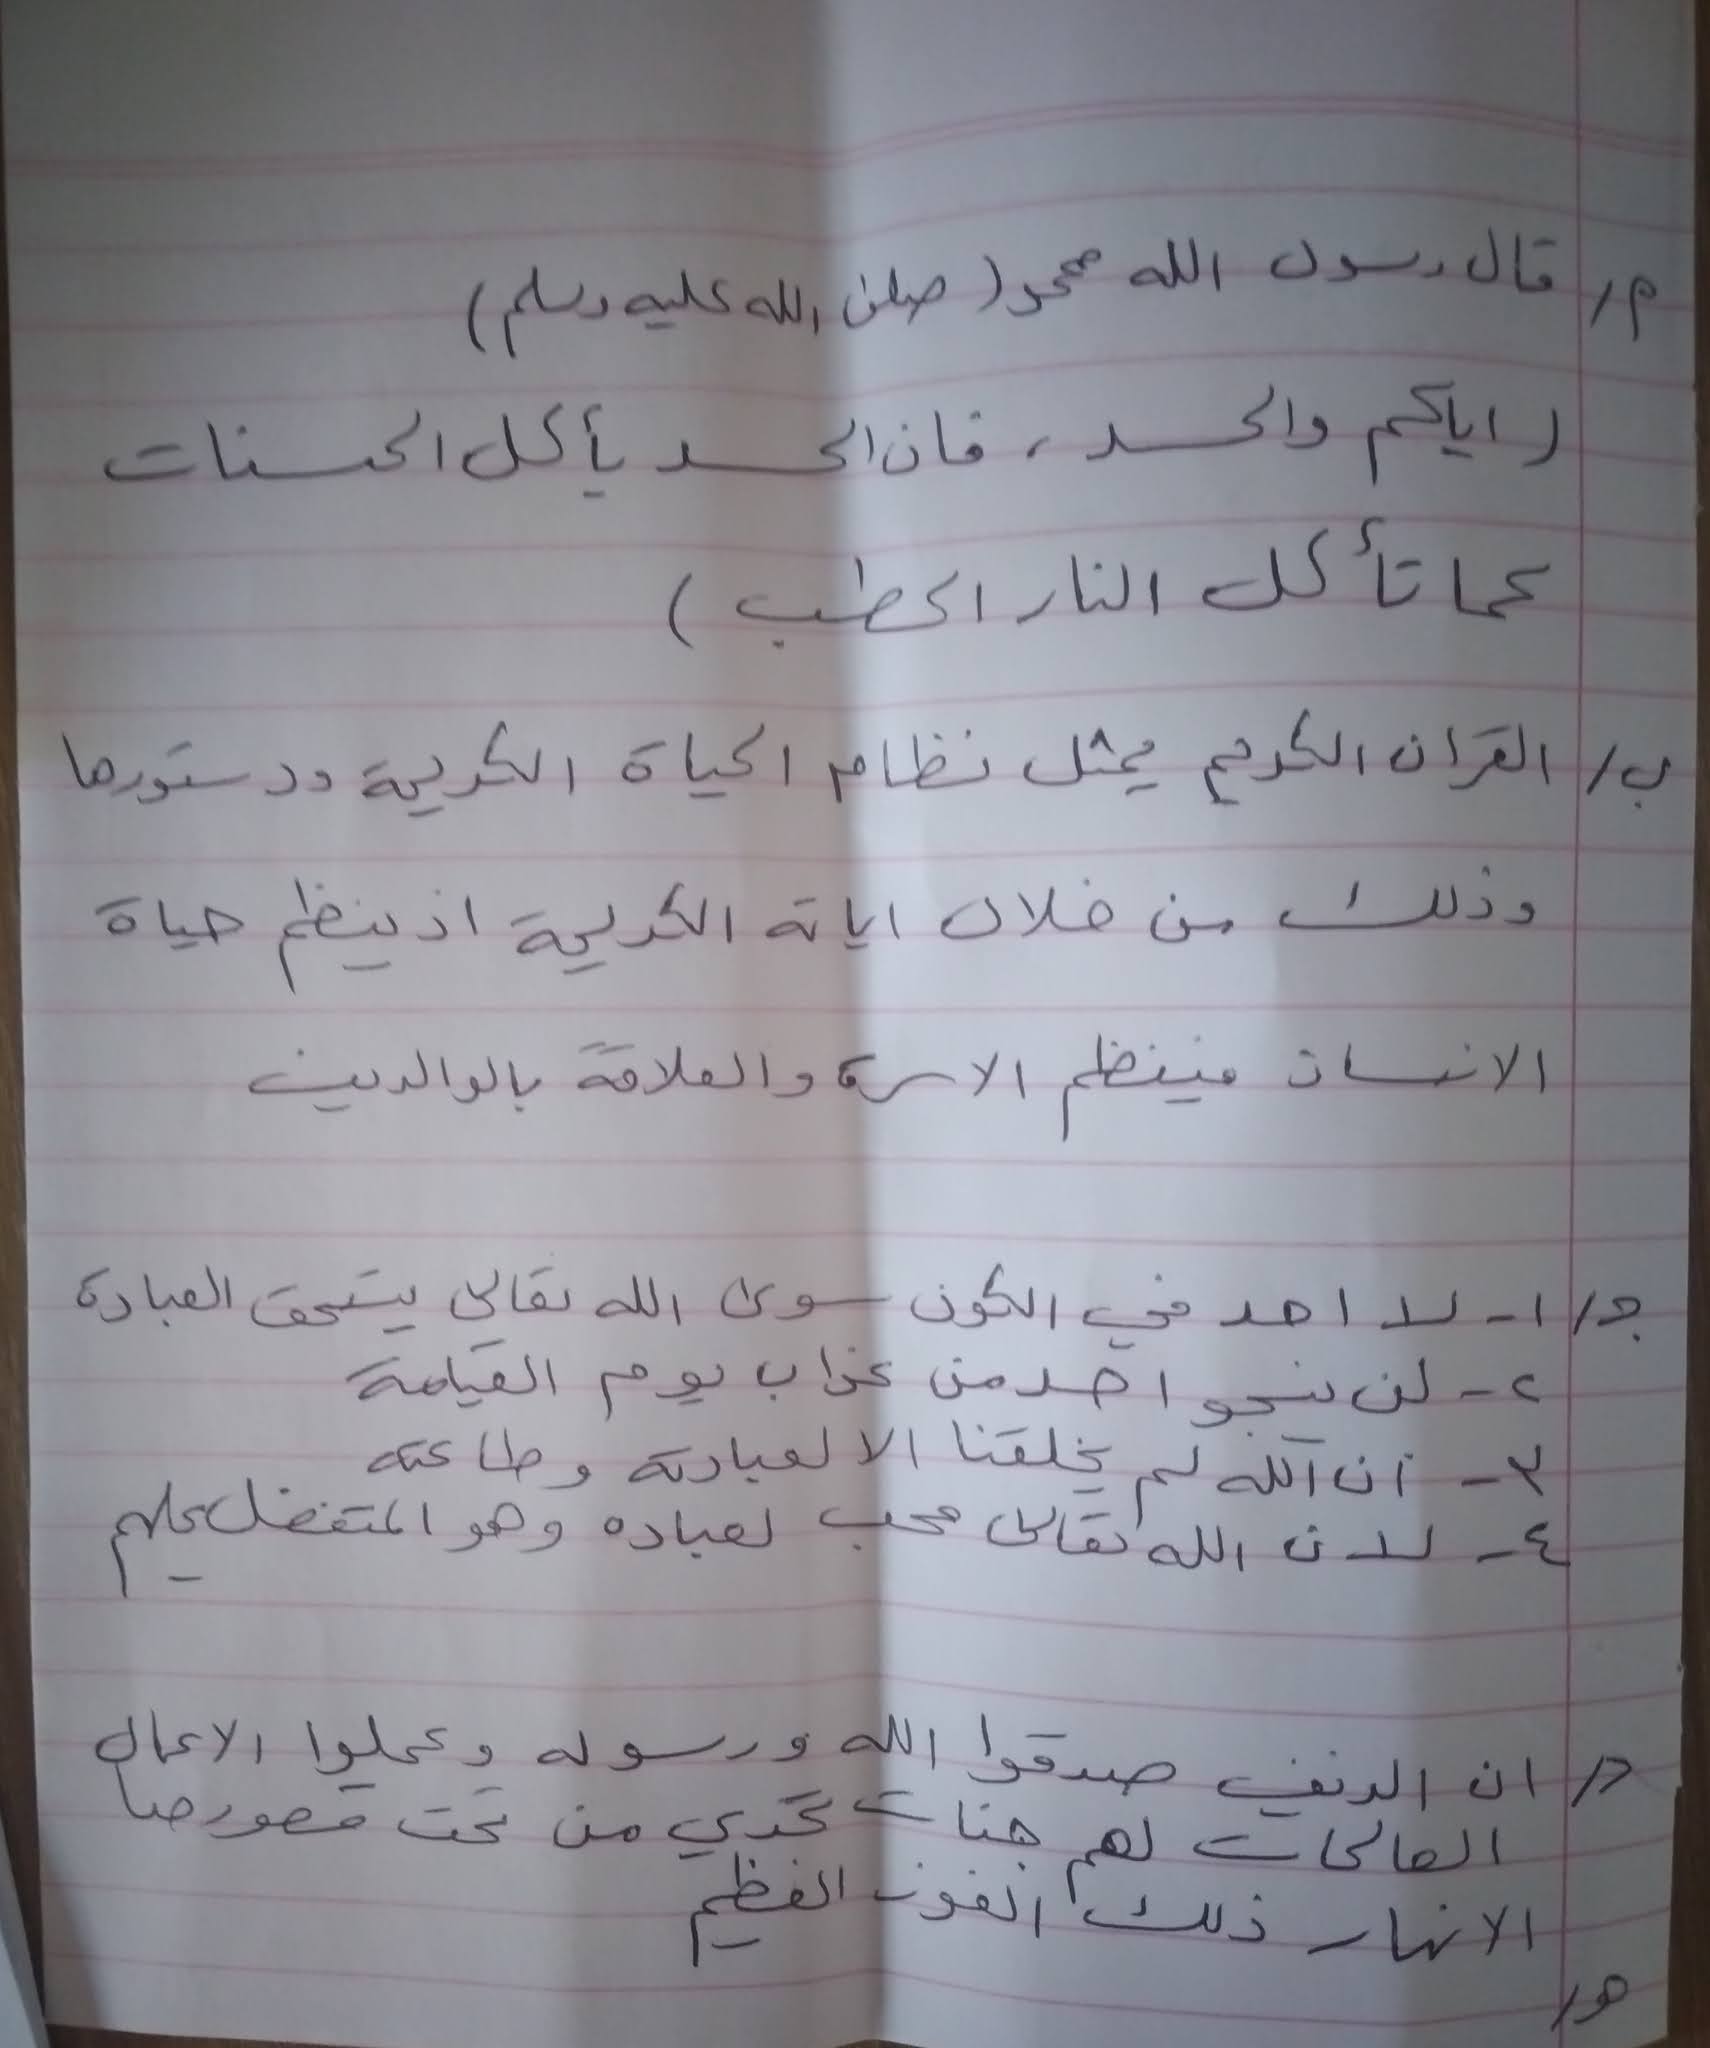 م/ قال رسول الله محمد (صلى الله عليه وسلم)
(اياكم والحسد ، فان الحسد يأكل الحسنات
كما تأكل النار الحطب)
ب/ القران الكريم يمثل نظام الحياة الكريمة ودستورها
وذلك من خلال اياته الكريمة اذ ينظم حياة
الانسان فينظم الاسرة والعلاقة بالوالدين
ج/ ١- لا احد في الكون سوى الله تعالى يستحق العبادة
٢- لن ينجوا احد من عذاب يوم القيامة
٣- ان الله لم يخلقنا الا لعبادته وطاعته
٤- لان الله تعالى محب لعباده وهو المتفضل عليهم
د/ ان الذين صدقوا الله ورسوله وعملوا الاعمال
الصالحات لهم جنات تجري من تحت قصورها
الانهار ذلك الفوز العظيم
هـ/